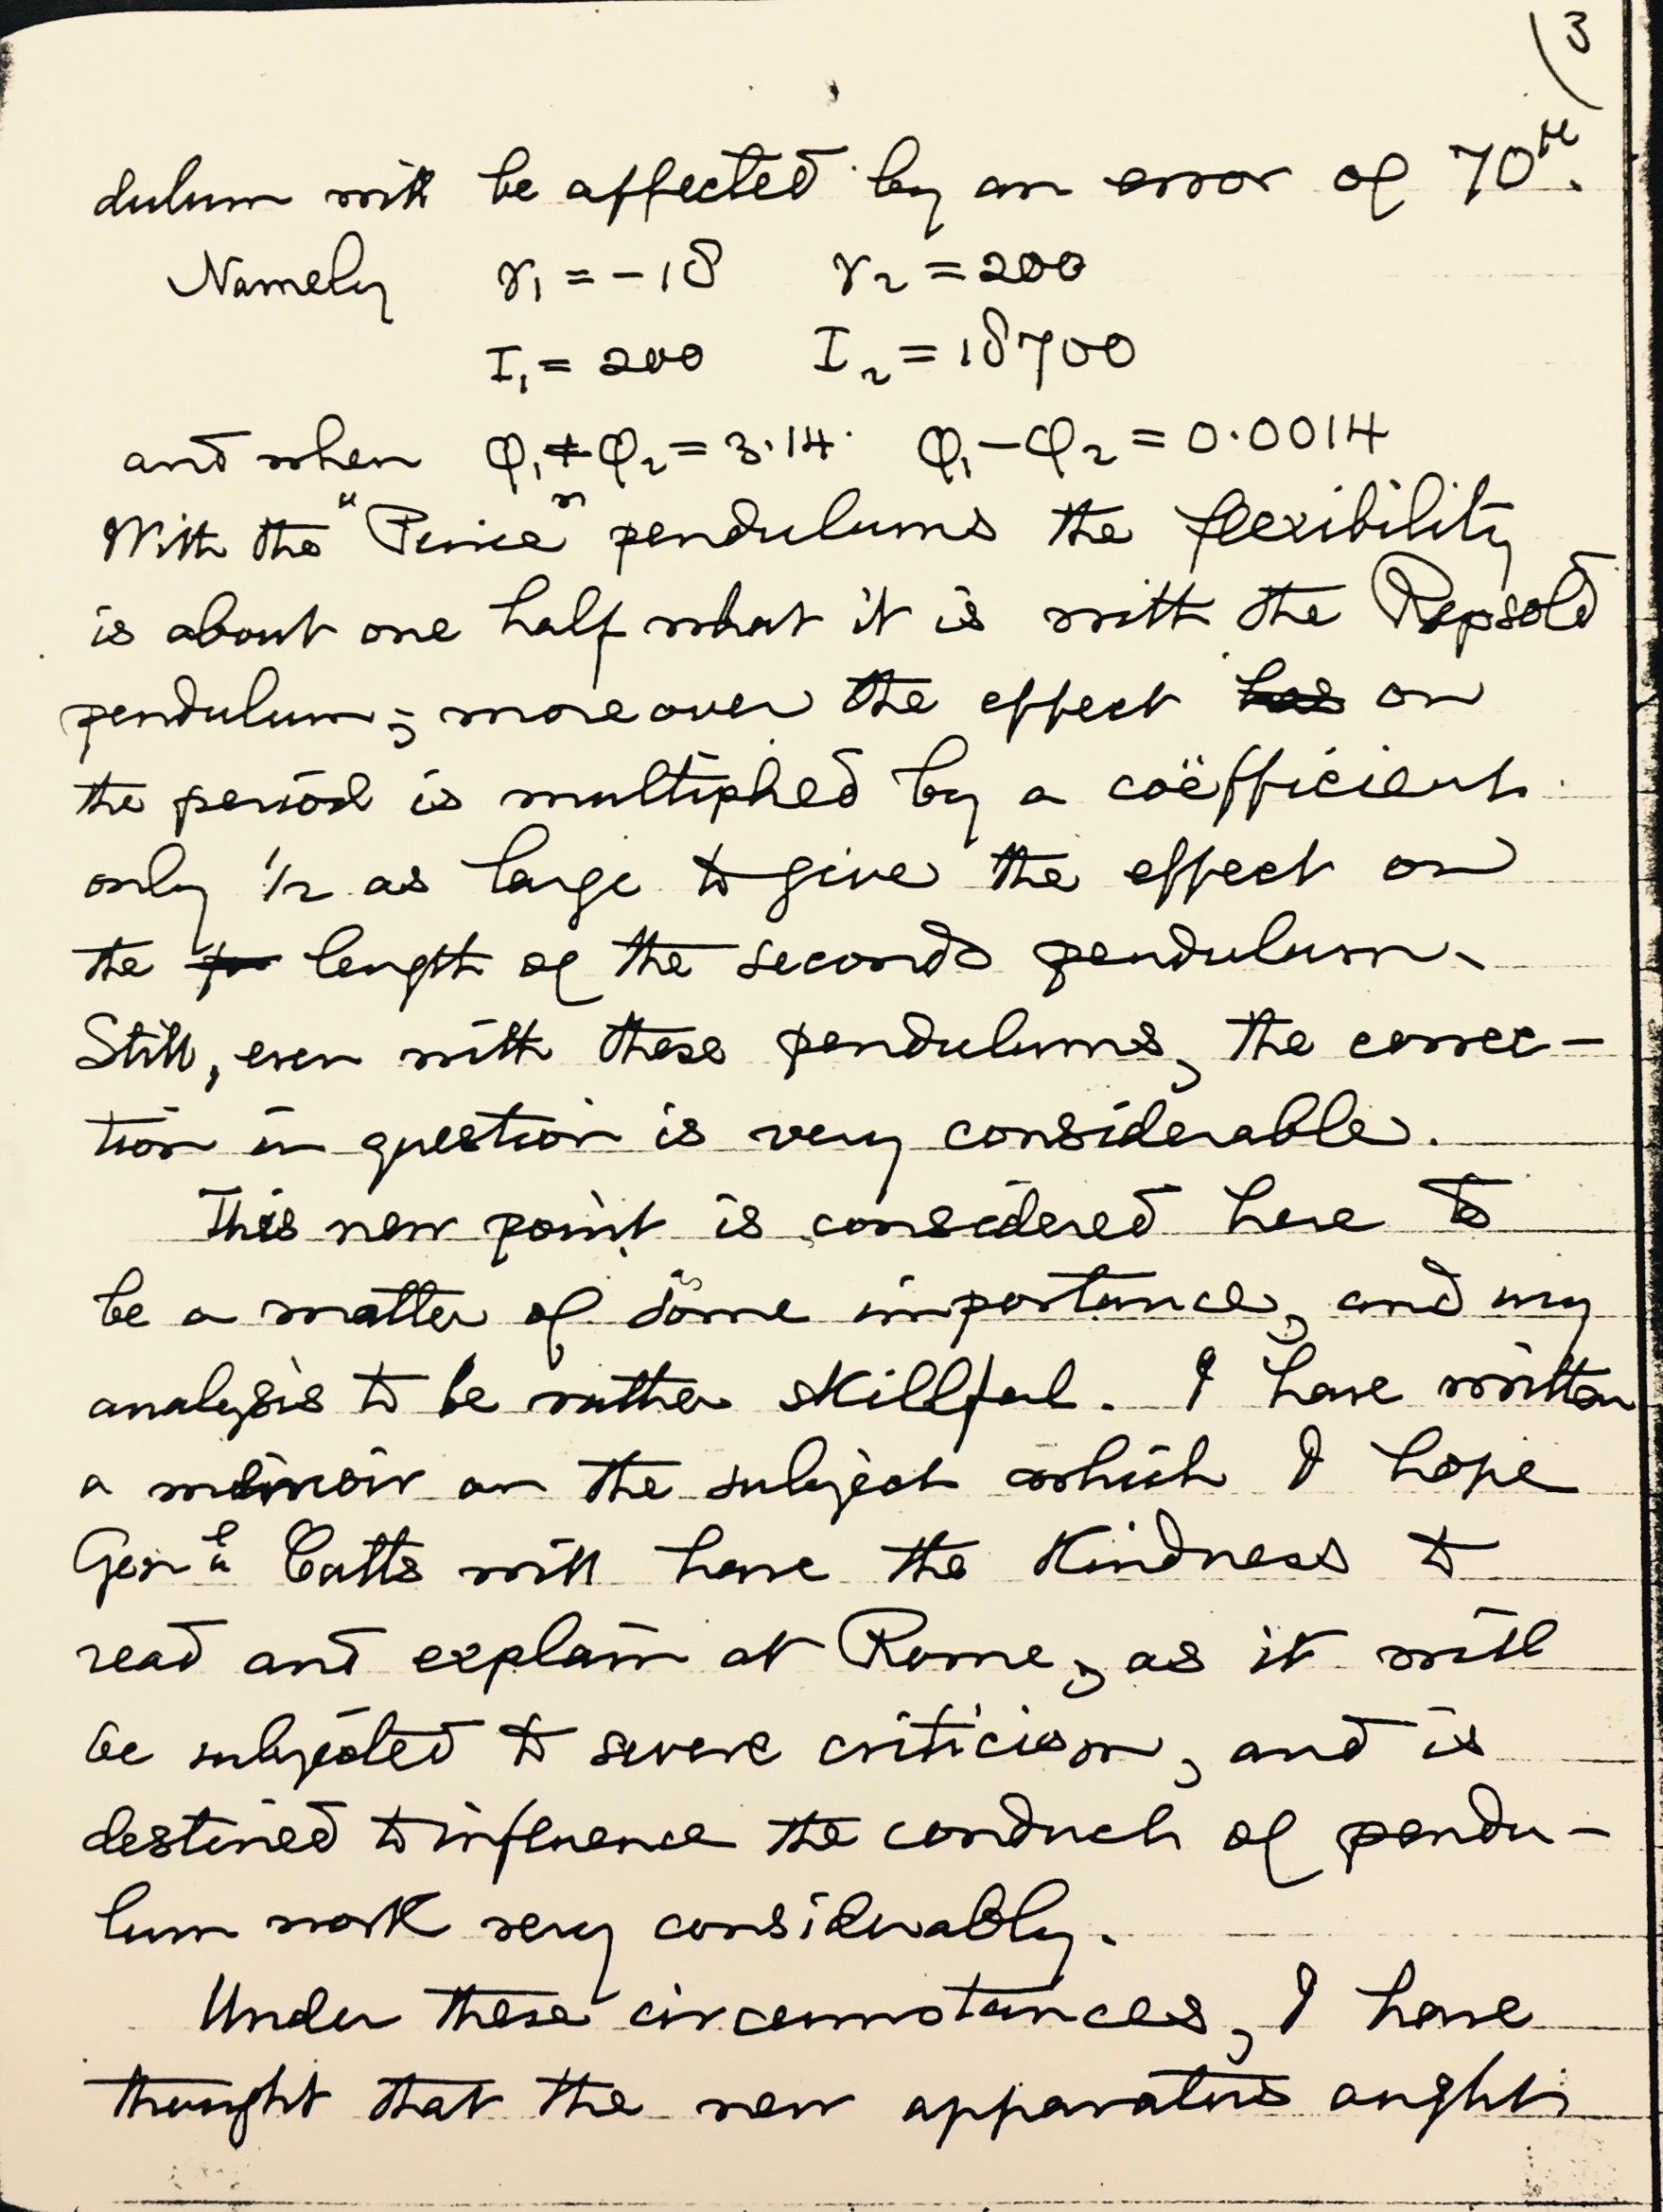 (3
dulum will be affected by an error of 70μ.
Namely γ₁ = -18 γ₂ = 200
I₁ = 200 I₂ = 18700
and when φ₁+φ₂ = 3.14 φ₁-φ₂ = 0.0014
With the "Peirce" pendulums the flexibility
is about one half what it is with the Repsold
pendulum; moreover the effect has on
the period is multiplied by a coëfficient
only 1/2 as large to give the effect on
the length of the seconds pendulum.
Still, even with these pendulums, the correc-
tion in question is very considerable.
This new point is considered here to
be a matter of some importance, and my
analysis to be rather skillful. I have written
a memoir on the subject which I hope
Gen'l Cutts will have the kindness to
read and explain at Rome, as it will
be subjected to severe criticism, and is
destined to influence the conduct of pendu-
lum work very considerably.
Under these circumstances, I have
thought that the new apparatus ought